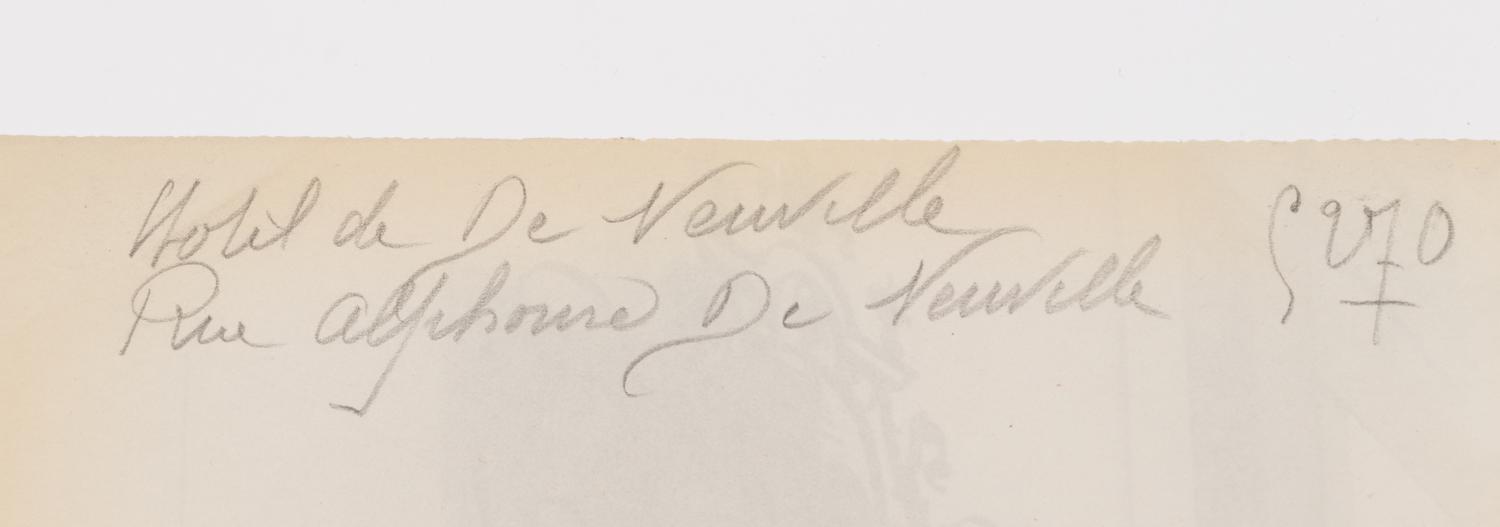 Hotel de De Neuville
Rue alphonse De Neuville